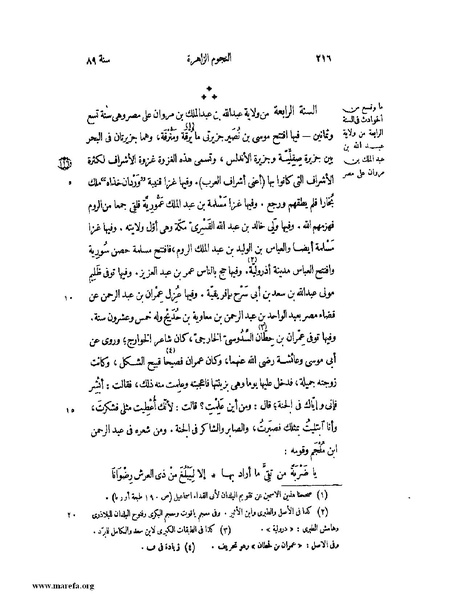 ٢١٦ النجوم الزاهرة سنة ٨٩
ما وقع من
الحوادث فى السنة
الرابعة من ولاية
عبد الله بن
عبد الملك بن
مروان على مصر
السنة الرابعة من ولاية عبد الله بن عبد الملك بن مروان على مصر وهى سنة تسع
وثمانين — فيها افتتح موسى بن نُصَير جزيرتى مَايُرقَة ومَنُرقَة، وهما جزيرتان فى البحر
بين جزيرة صِقِلِّيَة وجزيرة الأندلس، وتسمى هذه الغزوة غزوة الأشراف لكثرة
الأشراف التى كانوا بها (أعنى أشراف العرب). وفيها غزا قتيبة "وَرْدان خُذاه" ملك ٥
بُخارا فلم يطقهم ورجع. وفيها غزا مَسْلمة بن عبد الملك عَمُّورِيّة فلقى جمعا من الروم
فهزمهم الله. وفيها ولّى خالد بن عبد الله القَسْرِىّ مكة وهى أول ولايته. وفيها غزا
مَسْلمة أيضا والعباس بن الوليد بن عبد الملك الروم، فافتتح مسلمة حصن سُورِية
وافتتح العباس مدينة أذرولية. وفيها حج بالناس عمر بن عبد العزيز. وفيها توفى ظَلِيم
مولى عبد الله بن سعد بن أبى سَرْح بإفريقية. وفيها عُزِل عِمْران بن عبد الرحمن عن ١٠
قضاء مصر بعبد الواحد بن عبد الرحمن بن معاوية بن حُدَيج وله خمس وعشرون سنة.
وفيها توفى عمران بن حِطّان السَّدُوسىّ الخارجىّ، كان شاعر الخوارج؛ وروى عن
أبى موسى وعائشة رضى الله عنهما، وكان عمران فصيحا قبيح الشكل، وكانت
زوجته جميلة، فدخل عليها يوما وهى بزينتها فأعجبته وعلمت منه ذلك، فقالت: أبشر
فإنى وإياك فى الجنة؛ قال: ومن أين علمتِ؟ قالت: لأنك أُعطيت مثلى فشكرت، ١٥
وأنا ابتليت بمثلك فصبرت، والصابر والشاكر فى الجنة. ومن شعره فى عبد الرحمن
ابن مُلْجَم وقومه:
يا ضَرْبةً من تقىٍّ ما أراد بها * إلا ليَبْلُغَ من ذى العرش رِضْوانَا
(١) صححنا هذين الاسمين عن تقويم البلدان لأبى الفداء إسماعيل (ص ١٩٠ طبعة أوربا).
(٢) كذا فى الأصل والطبرى وابن الأثير. وفى معجم ياقوت ومعجم البكرى وفتوح البلدان للبلاذرى ٢٠
وهامش الطبرى: «درولية». (٣) كذا فى الطبقات الكبرى لابن سعد والكامل للمبرّد.
وفى الأصل: «عمران بن قحطان» وهو تحريف. (٤) زيادة فى ف.
www.marefa.org